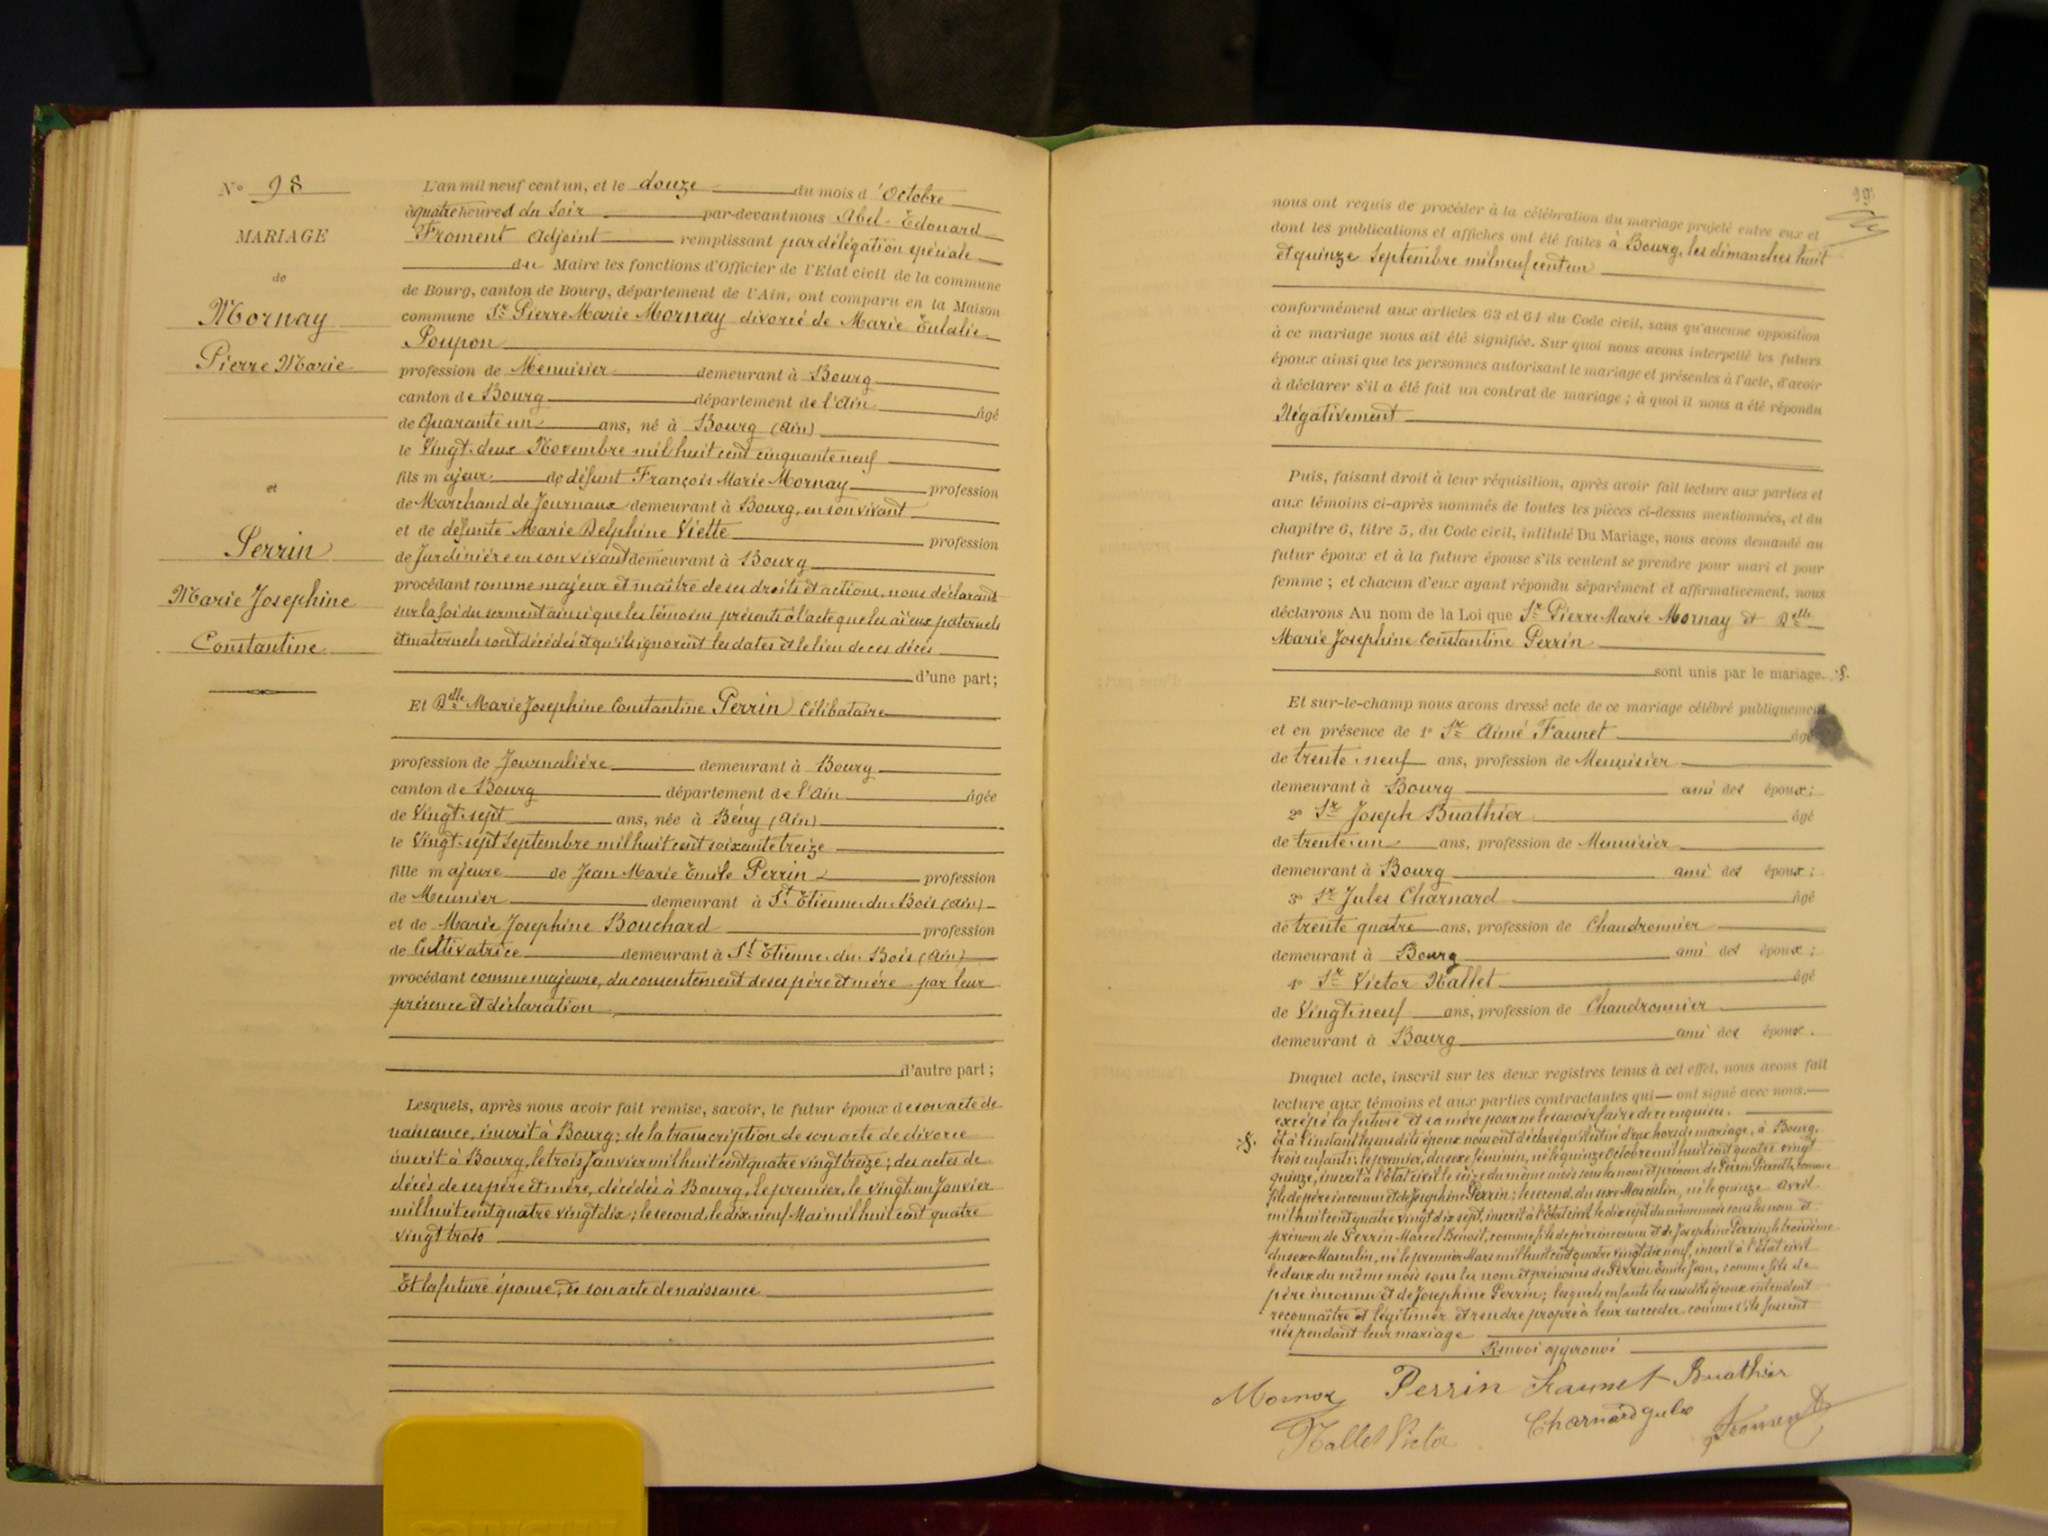 N° 98
MARIAGE
de
Mornay
Pierre Marie
et
Perrin
Marie Josephine
Constantine
L'an mil neuf cent un, et le douze du mois d'Octobre
à quatre heures du soir par-devant nous Abel-Edouard
Froment Adjoint remplissant par délégation spéciale
du Maire les fonctions d'Officier de l'Etat civil de la commune
de Bourg, canton de Bourg, département de l'Ain, ont comparu en la Maison
commune Sr Pierre Marie Mornay divorcé de Marie Eulalie
Poupon
profession de Menuisier demeurant à Bourg
canton de Bourg département de l'Ain âgé
de quarante un ans, né à Bourg (Ain)
le Vingt-deux Novembre mil huit cent cinquante neuf
fils majeur de défunt François Marie Mornay profession
de Marchand de Journaux demeurant à Bourg, en son vivant
et de défunte Marie Delphine Viette profession
de Jardinière en son vivant demeurant à Bourg
procédant comme majeur et maître de ses droits et actions, nous déclarant
sur la foi du serment ainsi que les témoins présents à l'acte que les aïeux paternels
et maternels sont décédés et qu'ils ignorent les dates et le lieu de ces décès
d'une part;
Et Delle Marie Josephine Constantine Perrin Célibataire
profession de Journalière demeurant à Bourg
canton de Bourg département de l'Ain âgée
de Vingt-sept ans, née à Bény (Ain)
le Vingt-sept Septembre mil huit cent soixante treize
fille majeure de Jean Marie Emile Perrin profession
de Meunier demeurant à St Etienne-du-Bois (Ain)
et de Marie Josephine Bouchard profession
de Cultivatrice demeurant à St Etienne-du-Bois (Ain)
procédant comme majeure, du consentement de ses père et mère par leur
présence et déclaration
d'autre part;
Lesquels, après nous avoir fait remise, savoir, le futur époux de son acte de
naissance, inscrit à Bourg; de la transcription de son acte de divorce
inscrit à Bourg, le trois Janvier mil huit cent quatre vingt treize; des actes de
décès de ses père et mère, décédés à Bourg, le premier, le vingt-un Janvier
mil huit cent quatre vingt dix; le second, le dix-neuf Mai mil huit cent quatre
vingt trois
Et la future épouse, de son acte de naissance
99
nous ont requis de procéder à la célébration du mariage projeté entre eux et
dont les publications et affiches ont été faites à Bourg, les dimanches huit
et quinze Septembre mil neuf cent un
conformément aux articles 63 et 64 du Code civil, sans qu'aucune opposition
à ce mariage nous ait été signifiée. Sur quoi nous avons interpellé les futurs
époux ainsi que les personnes autorisant le mariage et présentes à l'acte, d'avoir
à déclarer s'il a été fait un contrat de mariage; à quoi il nous a été répondu
Négativement
Puis, faisant droit à leur réquisition, après avoir fait lecture aux parties et
aux témoins ci-après nommés de toutes les pièces ci-dessus mentionnées, et du
chapitre 6, titre 5, du Code civil, intitulé Du Mariage, nous avons demandé au
futur époux et à la future épouse s'ils veulent se prendre pour mari et pour
femme; et chacun d'eux ayant répondu séparément et affirmativement, nous
déclarons Au nom de la Loi que Sr Pierre Marie Mornay et Delle
Marie Josephine Constantine Perrin
sont unis par le mariage. §.
Et sur-le-champ nous avons dressé acte de ce mariage célébré publiquement
et en présence de 1° Sr Aimé Faunet âgé
de trente-neuf ans, profession de Menuisier
demeurant à Bourg ami des époux;
2° Sr Joseph Buathier âgé
de trente-un ans, profession de Menuisier
demeurant à Bourg ami des époux;
3° Sr Jules Charnard âgé
de trente quatre ans, profession de Chaudronnier
demeurant à Bourg ami des époux;
4° Sr Victor Nallet âgé
de Vingt-neuf ans, profession de Chaudronnier
demeurant à Bourg ami des époux.
Duquel acte, inscrit sur les deux registres tenus à cet effet, nous avons fait
lecture aux témoins et aux parties contractantes qui ont signé avec nous.
excepté la future et sa mère pour ne le savoir faire de ce enquises.
§. Et à l'instant les susdits époux nous ont déclaré qu'il est né d'eux hors de mariage, à Bourg,
trois enfants: le premier, du sexe féminin, né le quinze Octobre mil huit cent quatre vingt
quinze, inscrit à l'état civil le seize du même mois sous les nom et prénom de Perrin comme
fils de père inconnu et de Josephine Perrin; le second, du sexe Masculin, né le quinze Avril
mil huit cent quatre vingt dix sept, inscrit à l'état civil le dix sept du même mois sous les nom et
prénom de Perrin Marcel Benoit, comme fils de père inconnu et de Josephine Perrin; le troisième
du sexe Masculin, né le premier Mars mil huit cent quatre vingt dix neuf, inscrit à l'état civil
le deux du même mois sous les nom et prénoms de Perrin Emile Jean, comme fils de
père inconnu et de Josephine Perrin; lesquels enfants les susdits époux entendent
reconnaître et légitimer et rendre propre à leur succéder comme s'ils fussent
nés pendant leur mariage
Renvoi approuvé
Mornay Perrin Faunet Buathier
Nallet Victor Charnard Jules Froment